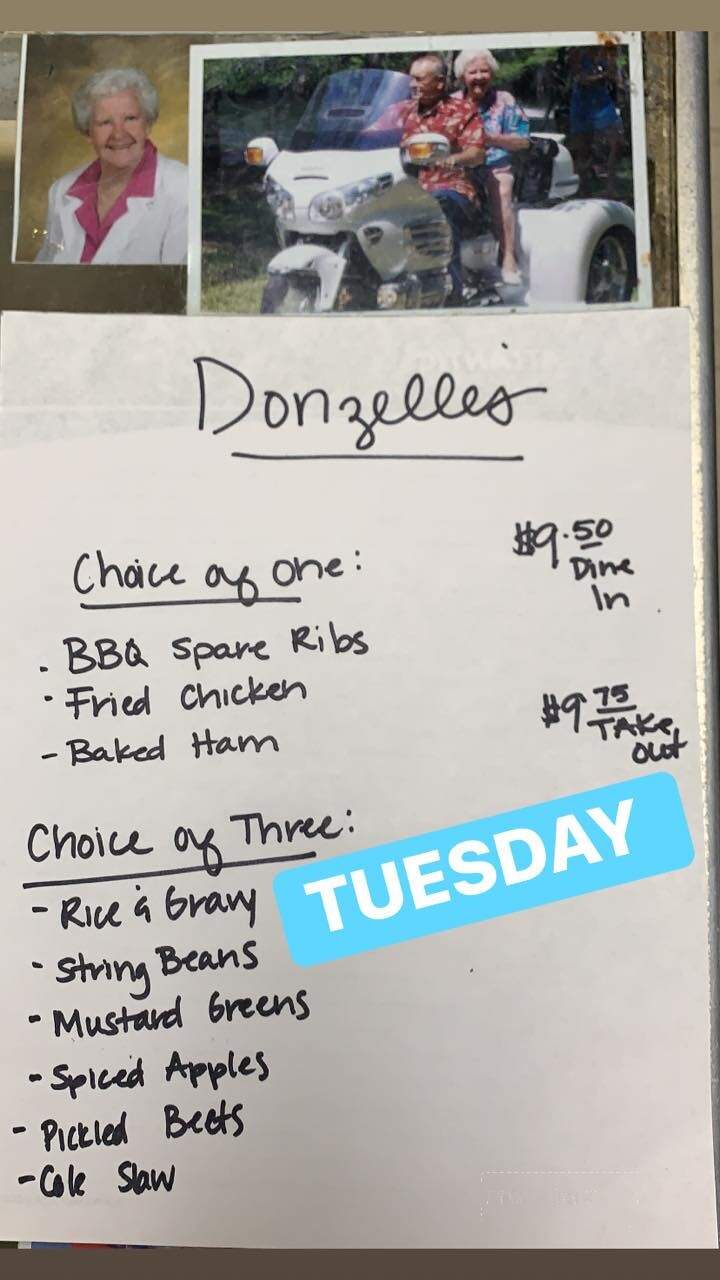 Donzelle's
Choice of one:
$9.50
Dine
In
. BBQ Spare Ribs
· Fried Chicken
- Baked Ham
$9 75
TAKE
out
Choice of Three:
TUESDAY
- Rice & Gravy
- String Beans
- Mustard Greens
- Spiced Apples
- Pickled Beets
- Cole Slaw